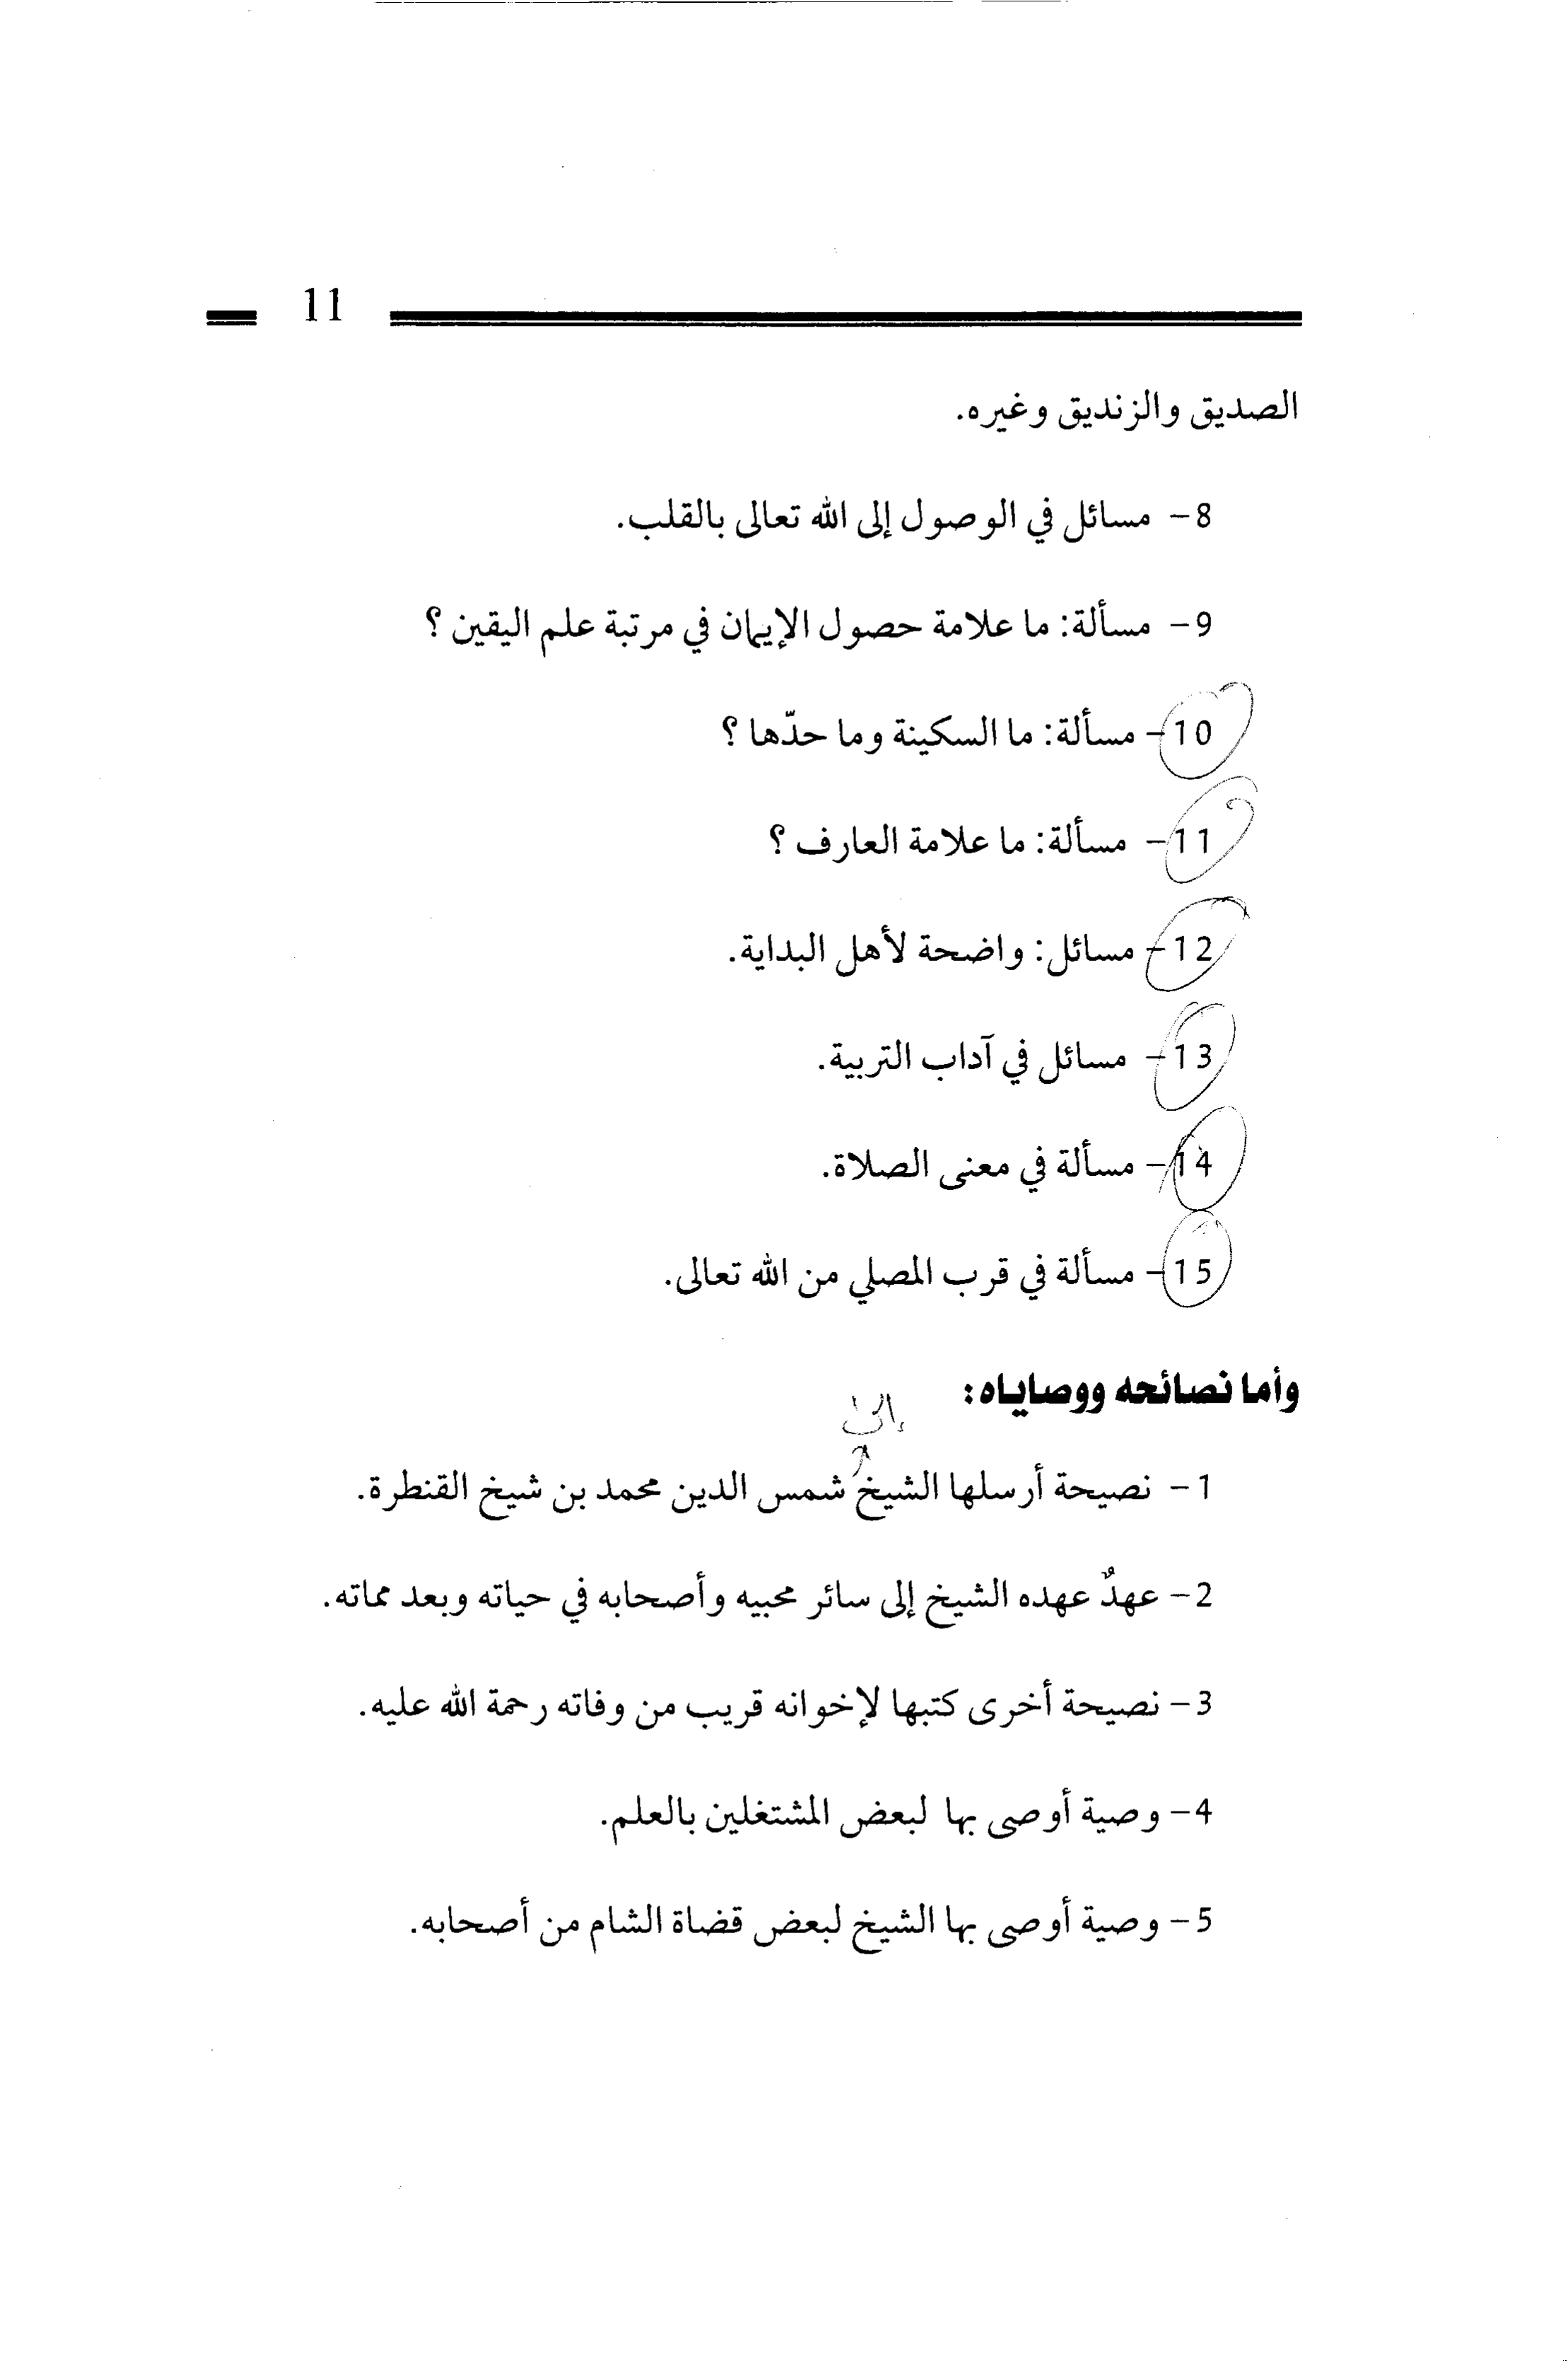 11
الصديق والزنديق وغيره.
8- مسائل في الوصول إلى الله تعالى بالقلب.
9- مسألة: ما علامة حصول الإيمان في مرتبة علم اليقين ؟
10- مسألة: ما السكينة وما حدّها ؟
11- مسألة: ما علامة العارف ؟
12- مسائل: واضحة لأهل البداية.
13- مسائل في آداب التربية.
14- مسألة في معنى الصلاة.
15- مسألة في قرب المصلي من الله تعالى.
وأما نصائحه ووصاياه:
إلى
1- نصيحة أرسلها الشيخ شمس الدين محمد بن شيخ القنطرة.
2- عهدٌ عهده الشيخ إلى سائر محبيه وأصحابه في حياته وبعد مماته.
3- نصيحة أخرى كتبها لإخوانه قريب من وفاته رحمة الله عليه.
4- وصية أوصى بها لبعض المشتغلين بالعلم.
5- وصية أوصى بها الشيخ لبعض قضاة الشام من أصحابه.